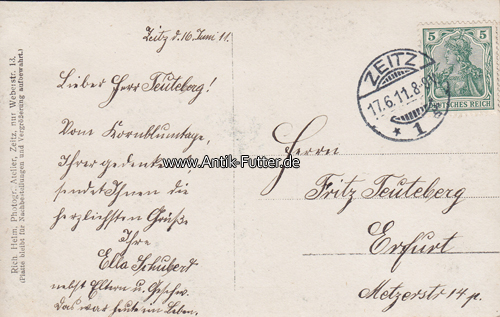 Zeitz d. 16. Juni 11.
Lieber Herr Teuteberg!
Vom Kornblumtage,
Ihrer gedenkend,
sendet Ihnen die
herzlichsten Grüße
Ihre
Ella Schubert
nebst Eltern u. Geschw.
Das war heute im Leben.
Herrn
Fritz Teuteberg
Erfurt
Metzerstr 14 p.
ZEITZ
17.6.11.8-9
* 1
5 5
DEUTSCHES REICH
Rich. Helm, Photogr. Atelier, Zeitz, nur Weberstr. 13.
(Platte bleibt für Nachbestellungen und Vergrößerung aufbewahrt.)
www.Antik-Futter.de